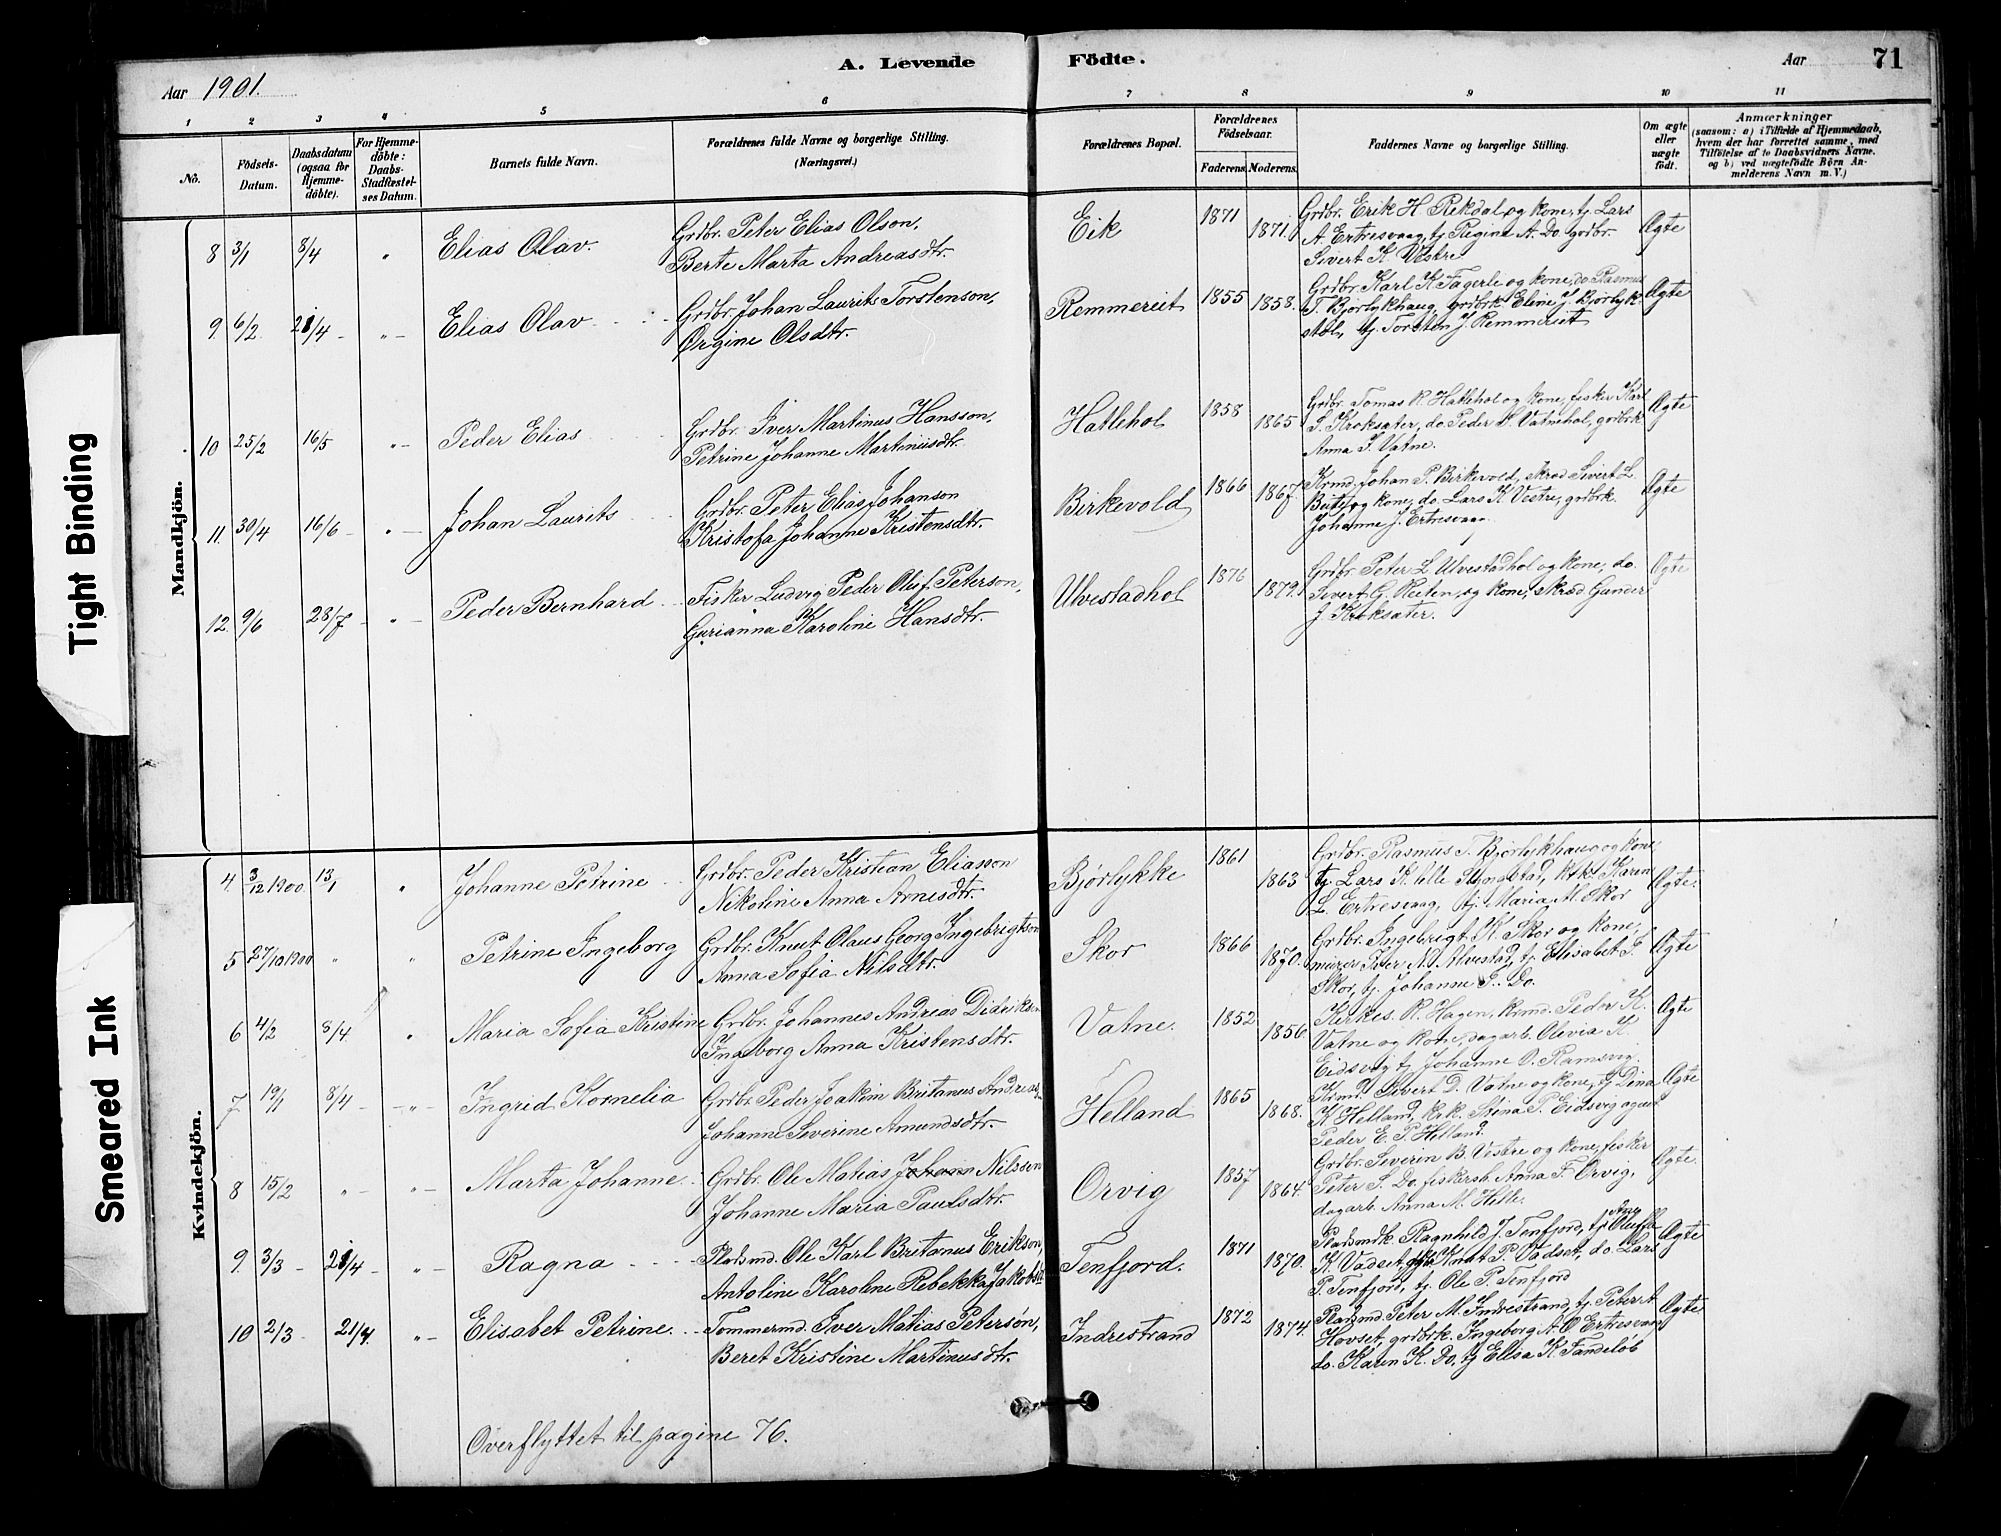 Aar 1901.
A. Levende Fødte.
Aar
71
1 2 3 4 5 6 7 8 9 10 11
No.
Födsels-Datum.
Daabsdatum (ogsaa for Hjemme-döbte).
For Hjemme-döbte: Daabs-Stadfæstel-ses Datum.
Barnets fulde Navn.
Forældrenes fulde Navne og borgerlige Stilling. (Næringsvei.)
Forældrenes Bopæl.
Forældrenes Födselsaar.
Faderens. Moderens.
Faddernes Navne og borgerlige Stilling.
Om ægte eller uægte födt.
Anmærkninger
(saasom: a) i Tilfælde af Hjemmedaab, hvem der har forrettet samme, med Tilföielse af to Daabsvidners Navne. og b) ved uægtefödte Børn Anmelderens Navn m. V.)
Mandkjön.
8 3/1 8/4 " Elias Olav. Grdbr. Peter Elias Olson, Eik 1871 Grdbr. Erik H Rekdal og kone, tj. Lars
Berte Marta Andreasdtr. 1871. A. Ertresvaag, tj. Regina A. Do. grdbr. Ægte
Sivert K. Vestre
9 6/2 21/4 - " - Elias Olav Grdbr. Johan Laurits Torstenson, Remmereit 1855 1858. Grdbr. Karl K Fagerli og kone, do Rasmus Ægte
Ørgine Olsdtr. T. Bjørlykhaug, grdbrk. Eline J. Bjørlyk
støl, tj. Torsten J. Remmereit
10 25/2 16/5 " - Peder Elias Grdbr. Iver Martinus Hansson, Hatlehol 1858 Grdbr. Tomas R. Hatlehol og kone, fisker Karl Ægte
Petrine Johanne Martinusdtr. 1865 S. Kroksæter, do. Peder P. Vatnehol, grdbrk
Anna S. Vatne.
11. 30/4 16/6 - " - Johan Laurits Grdbr. Peter Elias Johanson Birkevold 1866 1867. Krmd. Johan P. Birkevold, skræd Sivert L. Ægte
Kristofa Johanne Kristensdtr. og kone, do. Lars K Vestre, grdbrk.
Johanne J. Ertresvaag
12. 9/6 28/7 - " - Peder Bernhard Fisker Ludvig Peder Oluf Peterson, Ulvestadhol 1876 1879. Grdbr. Peter L. Ulvestadhol og kone, do. Ægte
Gurianna Karoline Hansdtr. Sivert G. Reiten, og kone, skræd Gunder
J. Kroksæter.
Kvindekjön.
4 3/12 1900. 13/1 " Johanne Petrine Grdbr. Peder Kristian Eliasson Bjørlykke 1861 Grdbr. Rasmus T. Bjørlykhaug og kone
Nikoline Anna Arnesdtr. 1863 tj. Lars K. Karen Ægte.
L. Ertresvaag, tj. Maria M. Skor
5 27/10 1900 " " Petrine Ingeborg Grdbr. Knut Olaus Georg Ingebrigtson Skor 1866 Grdbr. Ingebrigt K. Skor og kone, Ægte
Anna Sofia Nilsdtr. 1870. murer Iver N. Alvestad, tj. Elisabet P.
Skor, tj. Johanne P. Do.
6 4/2 8/4 " Maria Sofia Kristine Grdbr. Johannes Andreas Didriksen Vatne. 1852 Kirkes. R. Hagen, krmd. Peder K. Ægte
Ingeborg Anna Kristensdtr. 1856. Vatne og kone, dagarb. Olivia K.
Eidsvig tj. Johanne O. Ramsvig.
7 19/1 8/4 - " - Ingrid Kornelia Grdbr. Peder Joakim Britanus Andreas Helland 1865 Krmd. Sivert D. Vatne og kone, tj Dina Ægte
Johanne Severine Amundsdtr. 1868. K Helland, krk. Stina P. Eidsvig
Peder E. P. Helland
8 15/2 " - " - Marta Johanne. Grdbr. Ole Matias Johann Nilssen Orvig 1857 Grdbr. Severin B. Vestre og kone, fisker Ægte.
Johanne Maria Paulsdtr. 1864. Peter S. Do. Anna F. Orvig,
dagarb. Anna M. Hille.
9. 3/3 - 21/4 - " - Ragna Pladsmd. Ole Karl Britanus Erikson, Tenfjord. 1871 Pladsmdk. Ragnhild J. Tenfjord, tj. Oluffa Ægte
Antoline Karoline Rebekka Jakobsd 1870. K. Vadset, Knut P. Vadset, do. Lars
P. Tenfjord, tj. Ole P. Tenfjord
10 2/3 21/4. " - Elisabet Petrine. Tømmermd. Iver Matias Petersøn, Indrestrand 1872 Pladsmd Peter M. Indrestrand, tj. Peter A. Ægte
Beret Kristine Martinusdtr. 1874. Hovset, grdbrk. Ingeborg A. O Ertresvaag
do. Karen K. Do, tj Ellsa K Tandeløb
Overflyttet til pagine 76.
Tight Binding
Smeared Ink